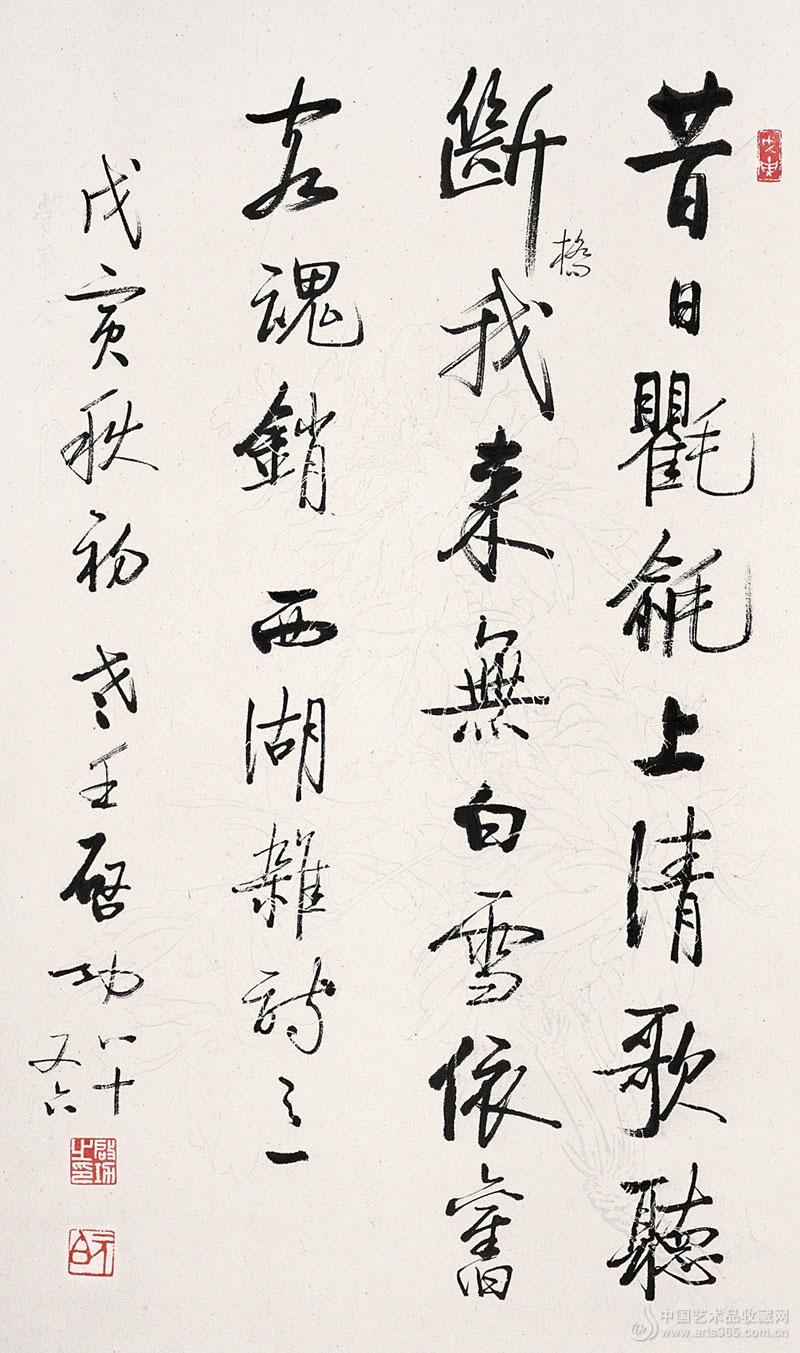 昔日氍毹上清歌聽
斷橋我来無白雪依舊
客魂銷 西湖雜詩之一
戊寅秋初 啓功 八十
又六
啟功之印
元白
中国艺术品收藏网
www.arts365.com.cn